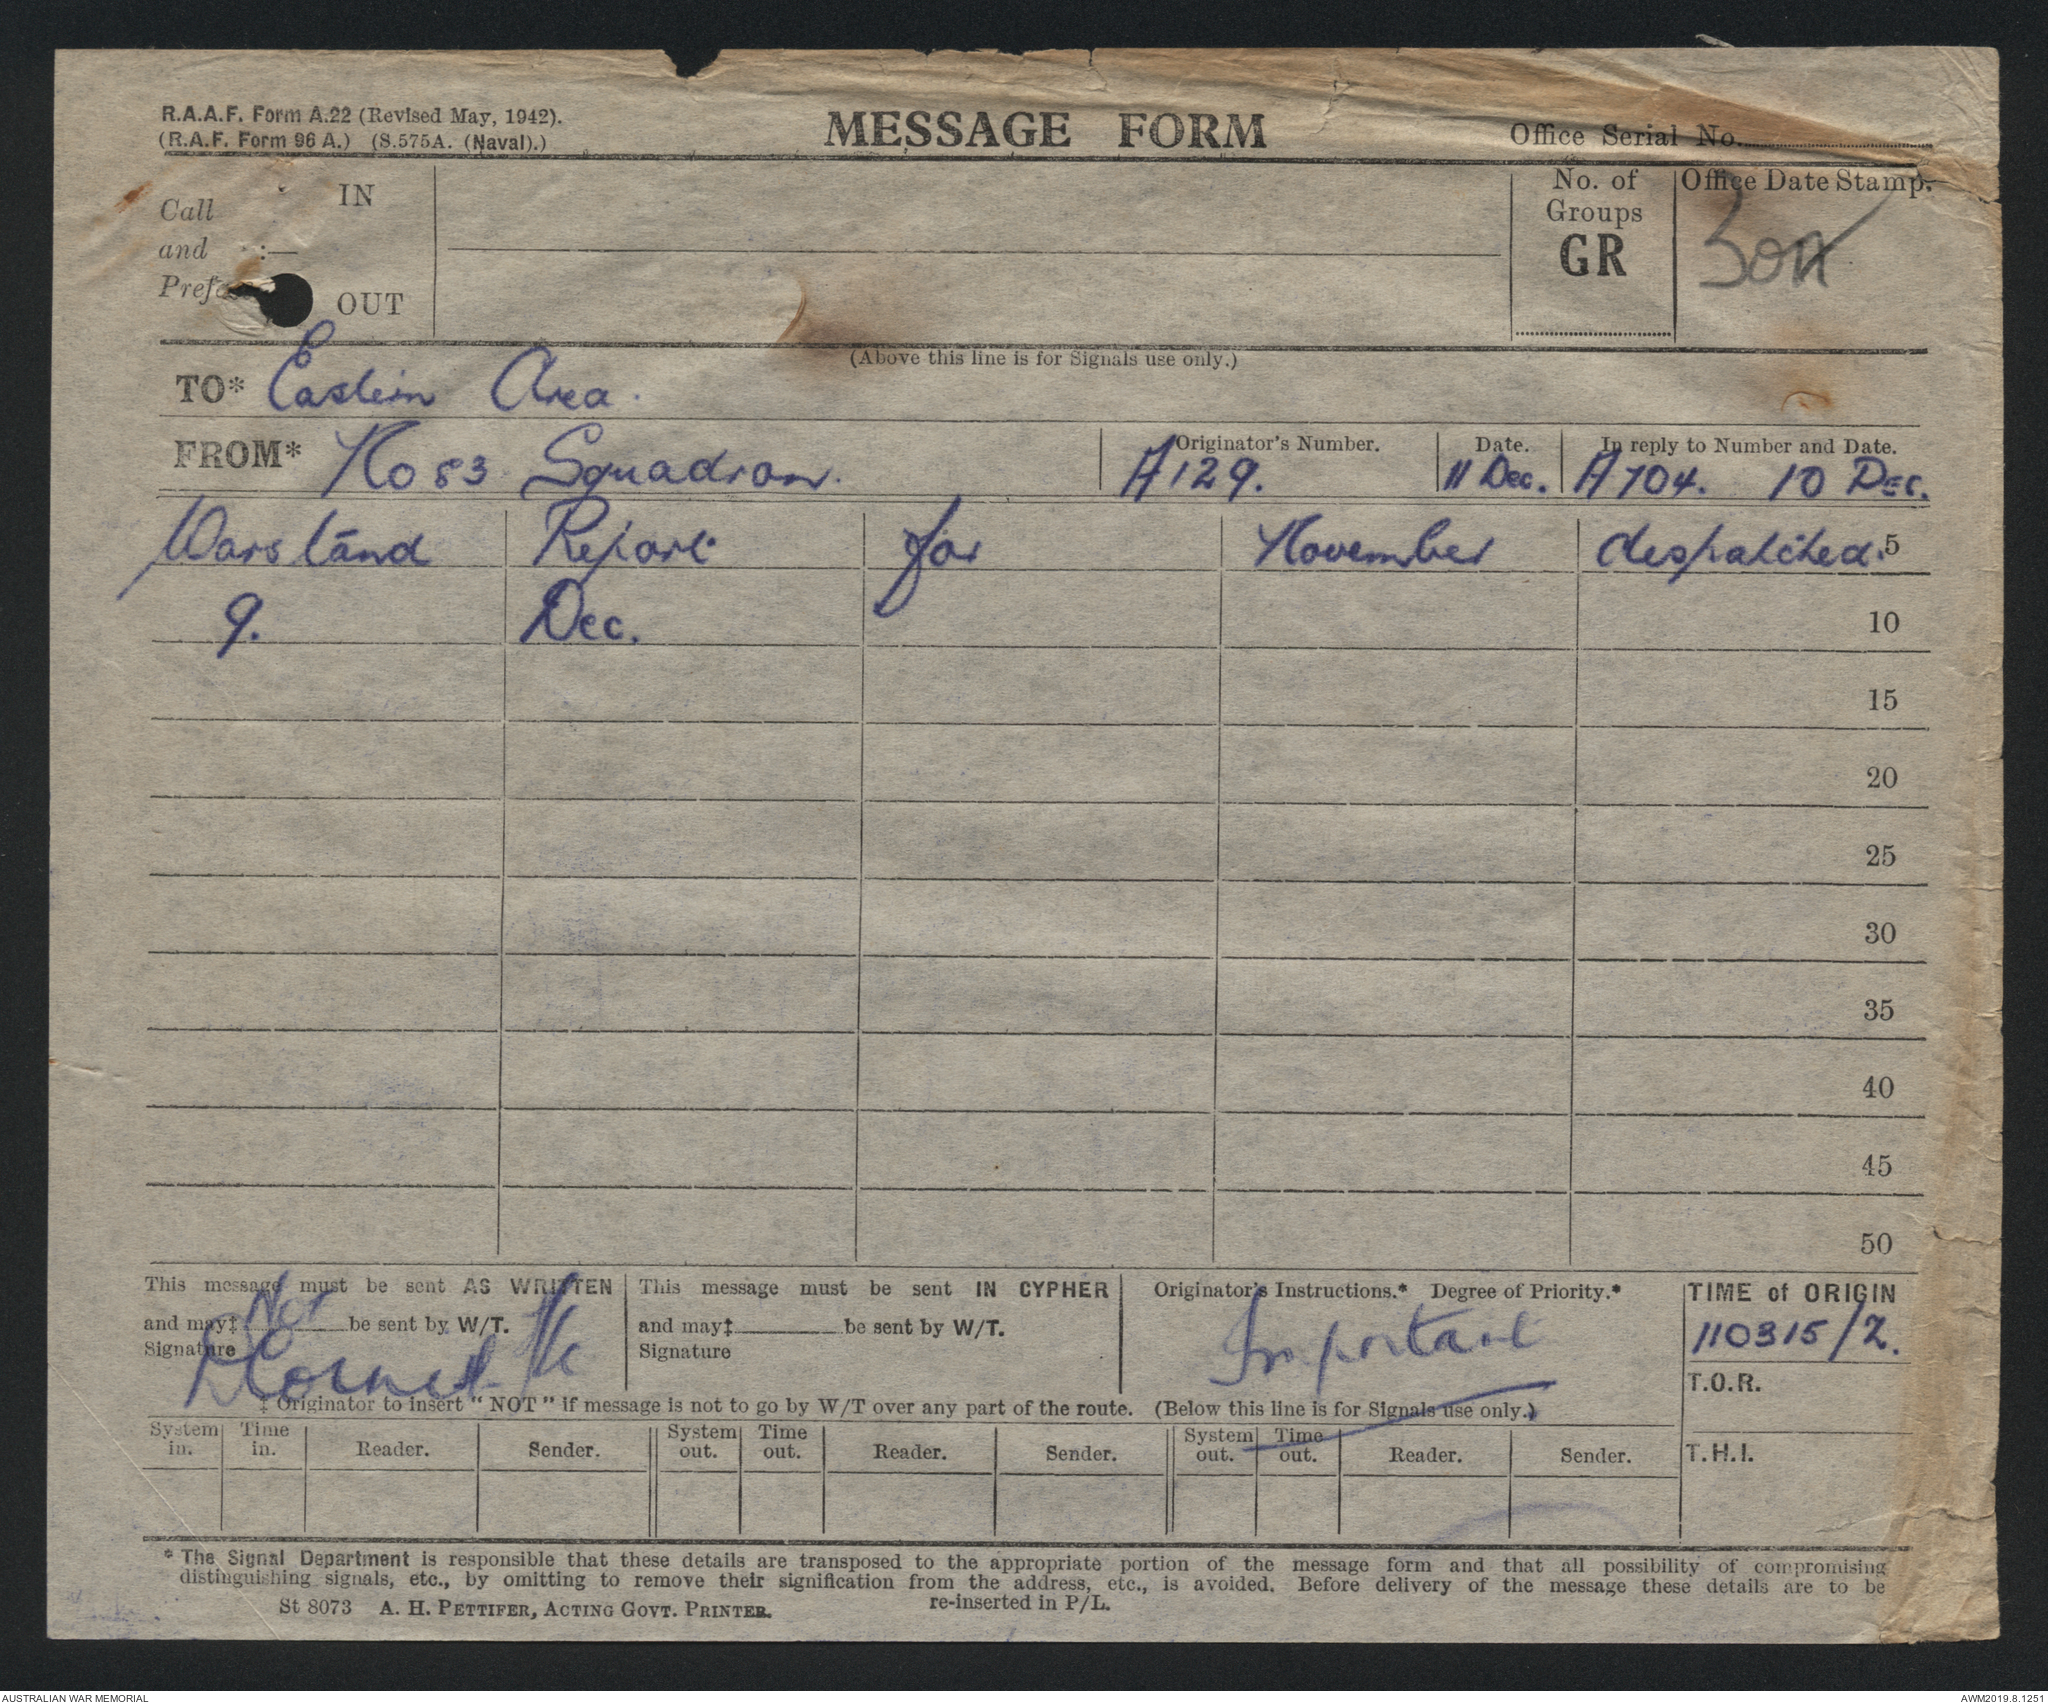 R.A.A.F. Form A.22 (Revised May, 1942).
(R.A.F. Form 96 A.) (S.575A. (Naval).)
MESSAGE FORM
Office Serial No.
Call
and :—
Prefa
IN
OUT
No. of
Groups
GR
Office Date Stamp.
(Above this line is for Signals use only.)
TO* Eastern Area.
FROM* No 83 Squadron.
Originator's Number.
A129.
Date.
11 Dec.
In reply to Number and Date.
A704. 10 DEC.
Warstand Report for November despatched. 5
9. Dec. 10
15
20
25
30
35
40
45
50
This message must be sent AS WRITTEN
and may‡ Not be sent by W/T.
Signature
This message must be sent IN CYPHER
and may‡ be sent by W/T.
Signature
Originator's Instructions.* Degree of Priority.*
Important
TIME of ORIGIN
110315/Z.
T.O.R.
T.H.I.
‡ Originator to insert "NOT" if message is not to go by W/T over any part of the route. (Below this line is for Signals use only.)
System in. Time in. Reader. Sender. System out. Time out. Reader. Sender. System out. Time out. Reader. Sender.
* The Signal Department is responsible that these details are transposed to the appropriate portion of the message form and that all possibility of compromising
distinguishing signals, etc., by omitting to remove their signification from the address, etc., is avoided. Before delivery of the message these details are to be
re-inserted in P/L.
St 8073 A. H. PETTIFER, ACTING GOVT. PRINTER.
AUSTRALIAN WAR MEMORIAL
AWM2019.8.1251